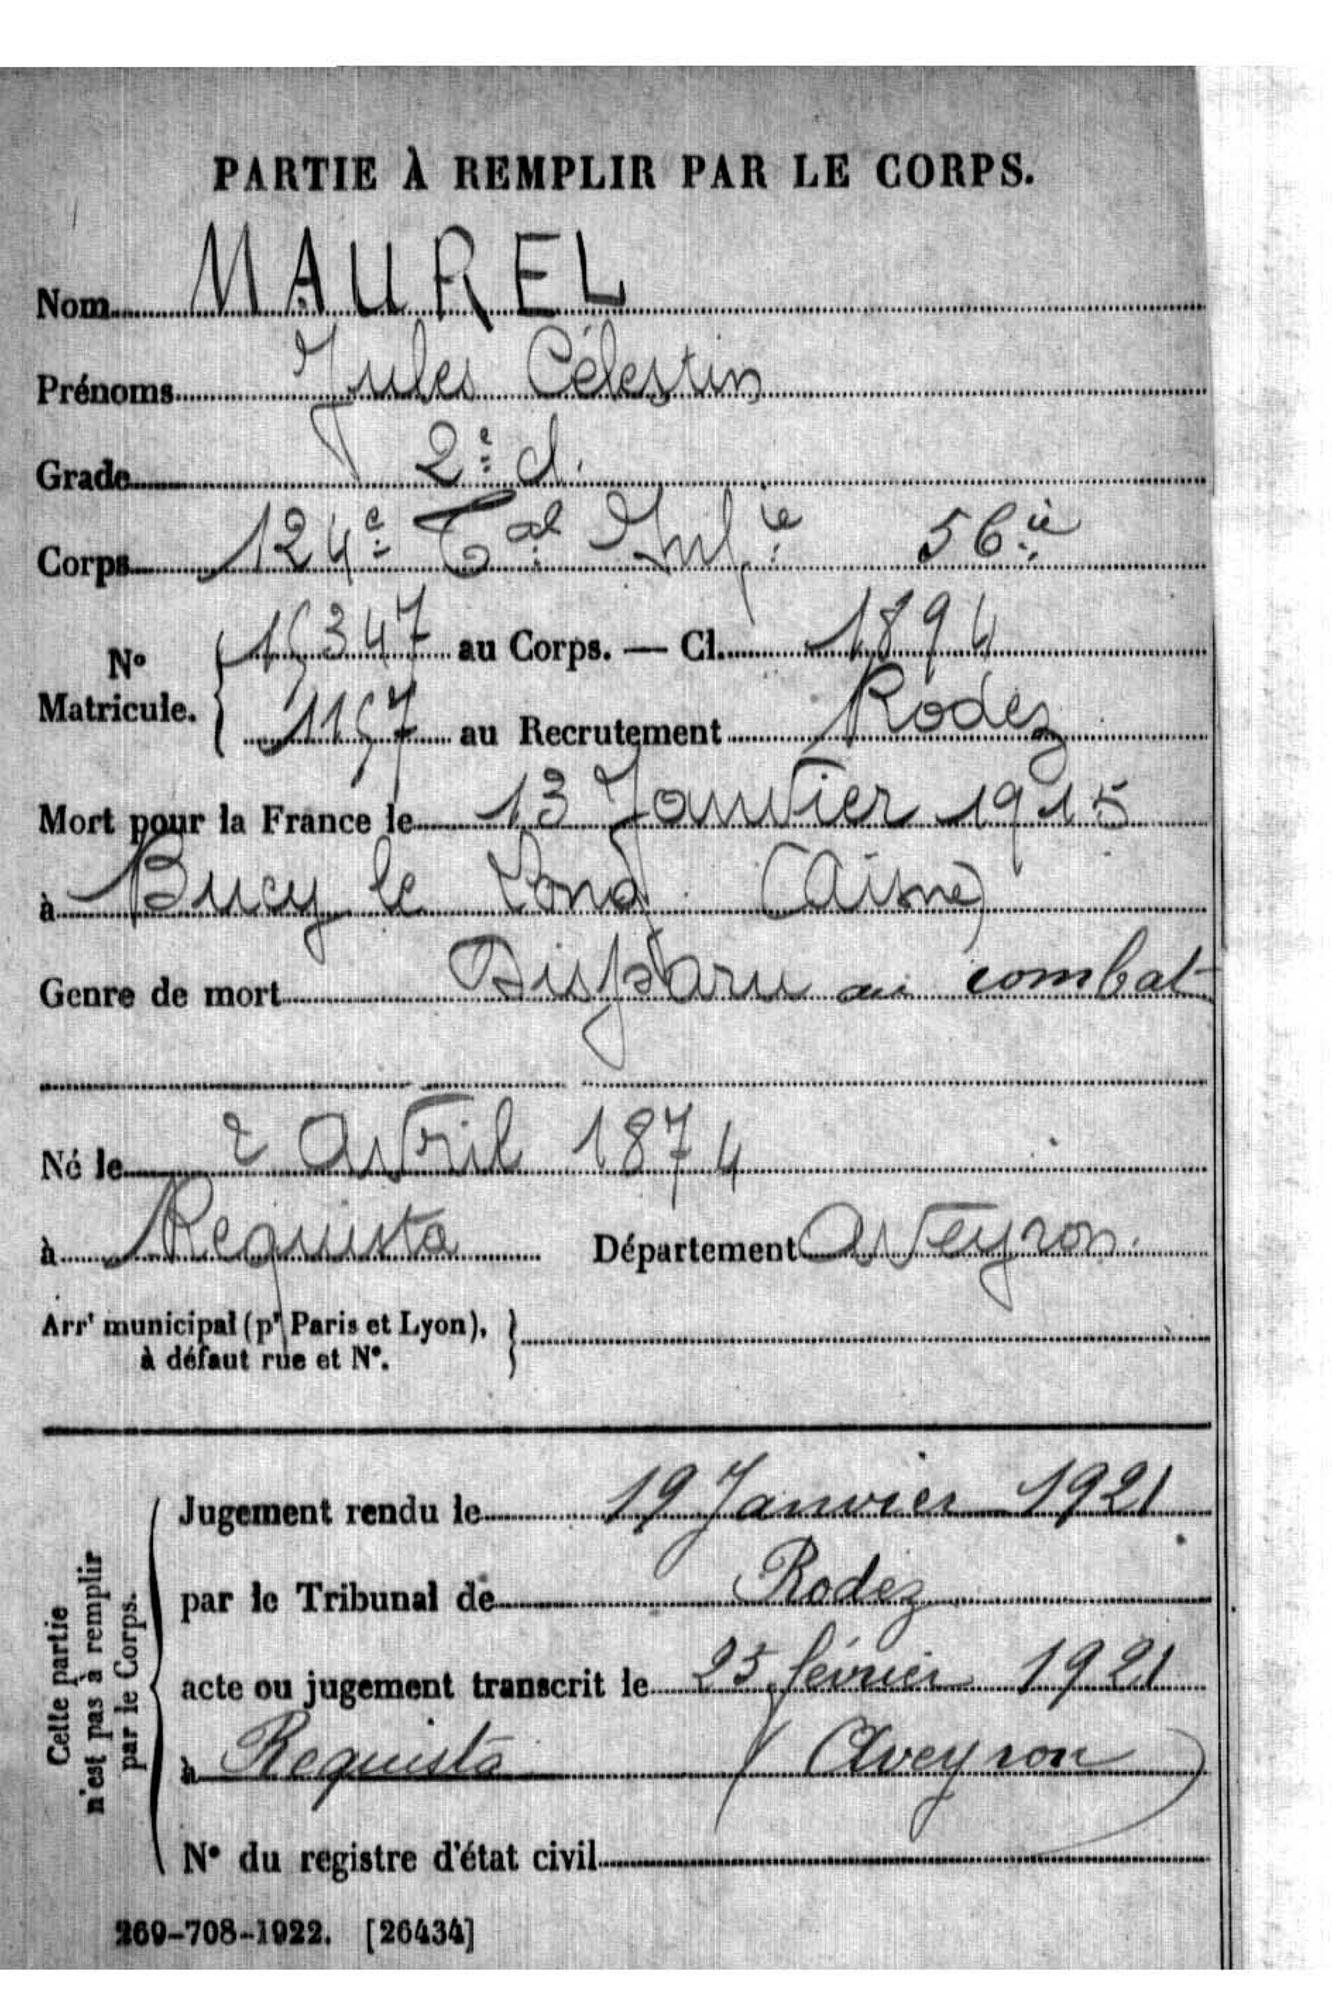 PARTIE À REMPLIR PAR LE CORPS.
Nom MAUREL
Prénoms Jules Célestin
Grade 2e cl.
Corps 124e Tal Infie 56 ie
No Matricule. 15347 au Corps. — Cl. 1894
1157 au Recrutement Rodez
Mort pour la France le 13 Janvier 1915
à Bucy le Long (Aisne)
Genre de mort Disparu au combat
Né le 2 Avril 1874
à Requista Département Aveyron.
Arrt municipal (pr Paris et Lyon),
à défaut rue et No.
Cette partie
n'est pas à remplir
par le Corps.
Jugement rendu le 19 Janvier 1921
par le Tribunal de Rodez
acte ou jugement transcrit le 25 février 1921
à Requista (Aveyron)
No du registre d'état civil
269-708-1922. [26434]